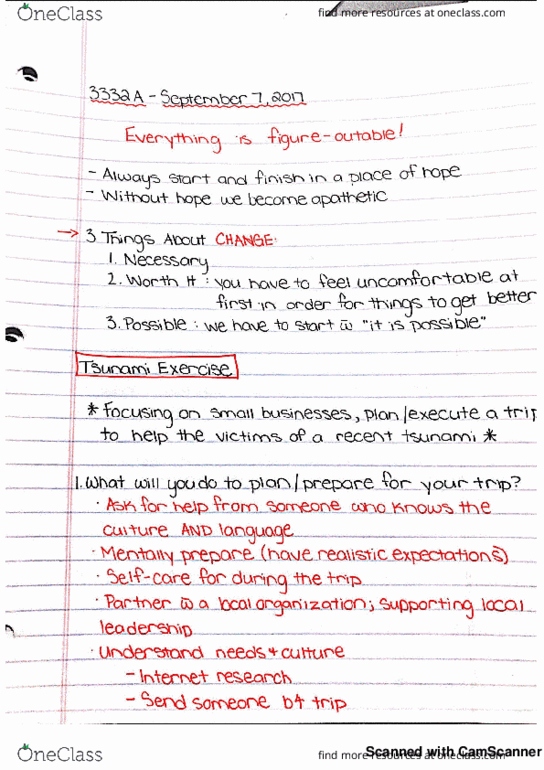 OneClass
find more resources at oneclass.com
3332A - September 7, 2017
Everything is figure-outable!
- Always start and finish in a place of hope
- Without hope we become apathetic
→ 3 Things About CHANGE:
1. Necessary
2. Worth It : you have to feel uncomfortable at
first in order for things to get better
3. Possible : we have to start w̄ "it is possible"
Tsunami Exercise
* Focusing on small businesses, plan/execute a trip
to help the victims of a recent tsunami *
1. What will you do to plan/prepare for your trip?
· Ask for help from someone who knows the
culture AND language
· Mentally prepare (have realistic expectations)
· Self-care for during the trip
· Partner w̄ a local organization; supporting local
leadership
· Understand needs + culture
- Internet research
- Send someone b4 trip
OneClass
find more resources at oneclass.com
Scanned with CamScanner